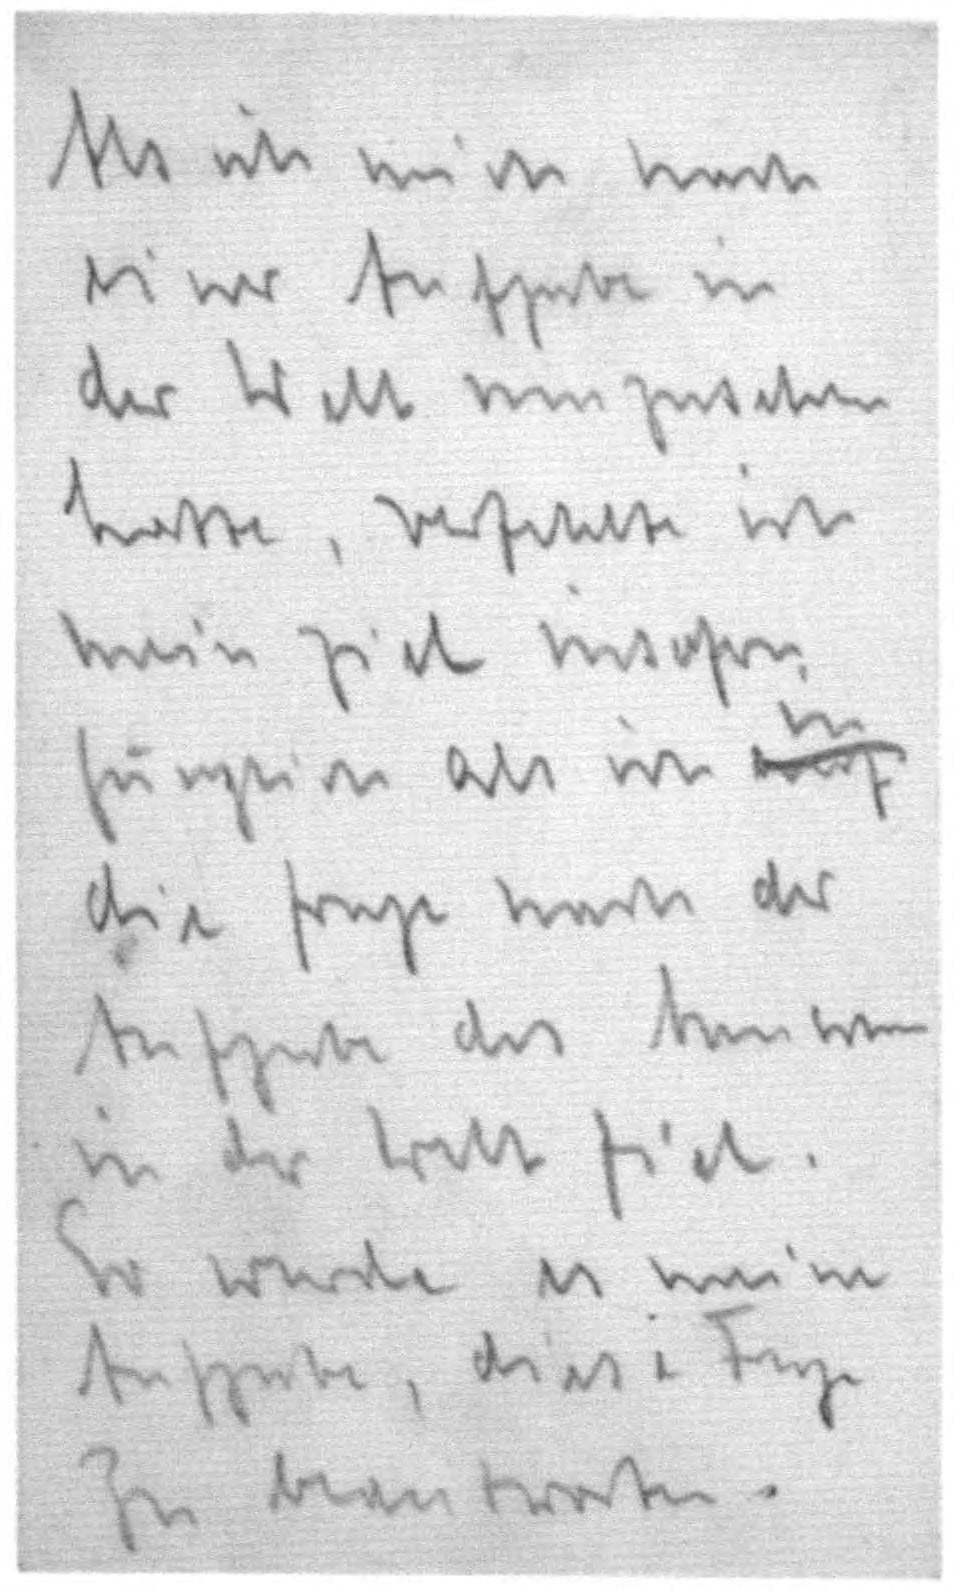 Als ich mich nach
einer Aufgabe in
der Welt umzusehen
hatte, verfehlte ich
mein Ziel insofern
in
als ich auf
die Frage nach der
Aufgabe des Menschen
in der Welt fiel.
So wurde es meine
Aufgabe, diese Frage
zu beantworten.